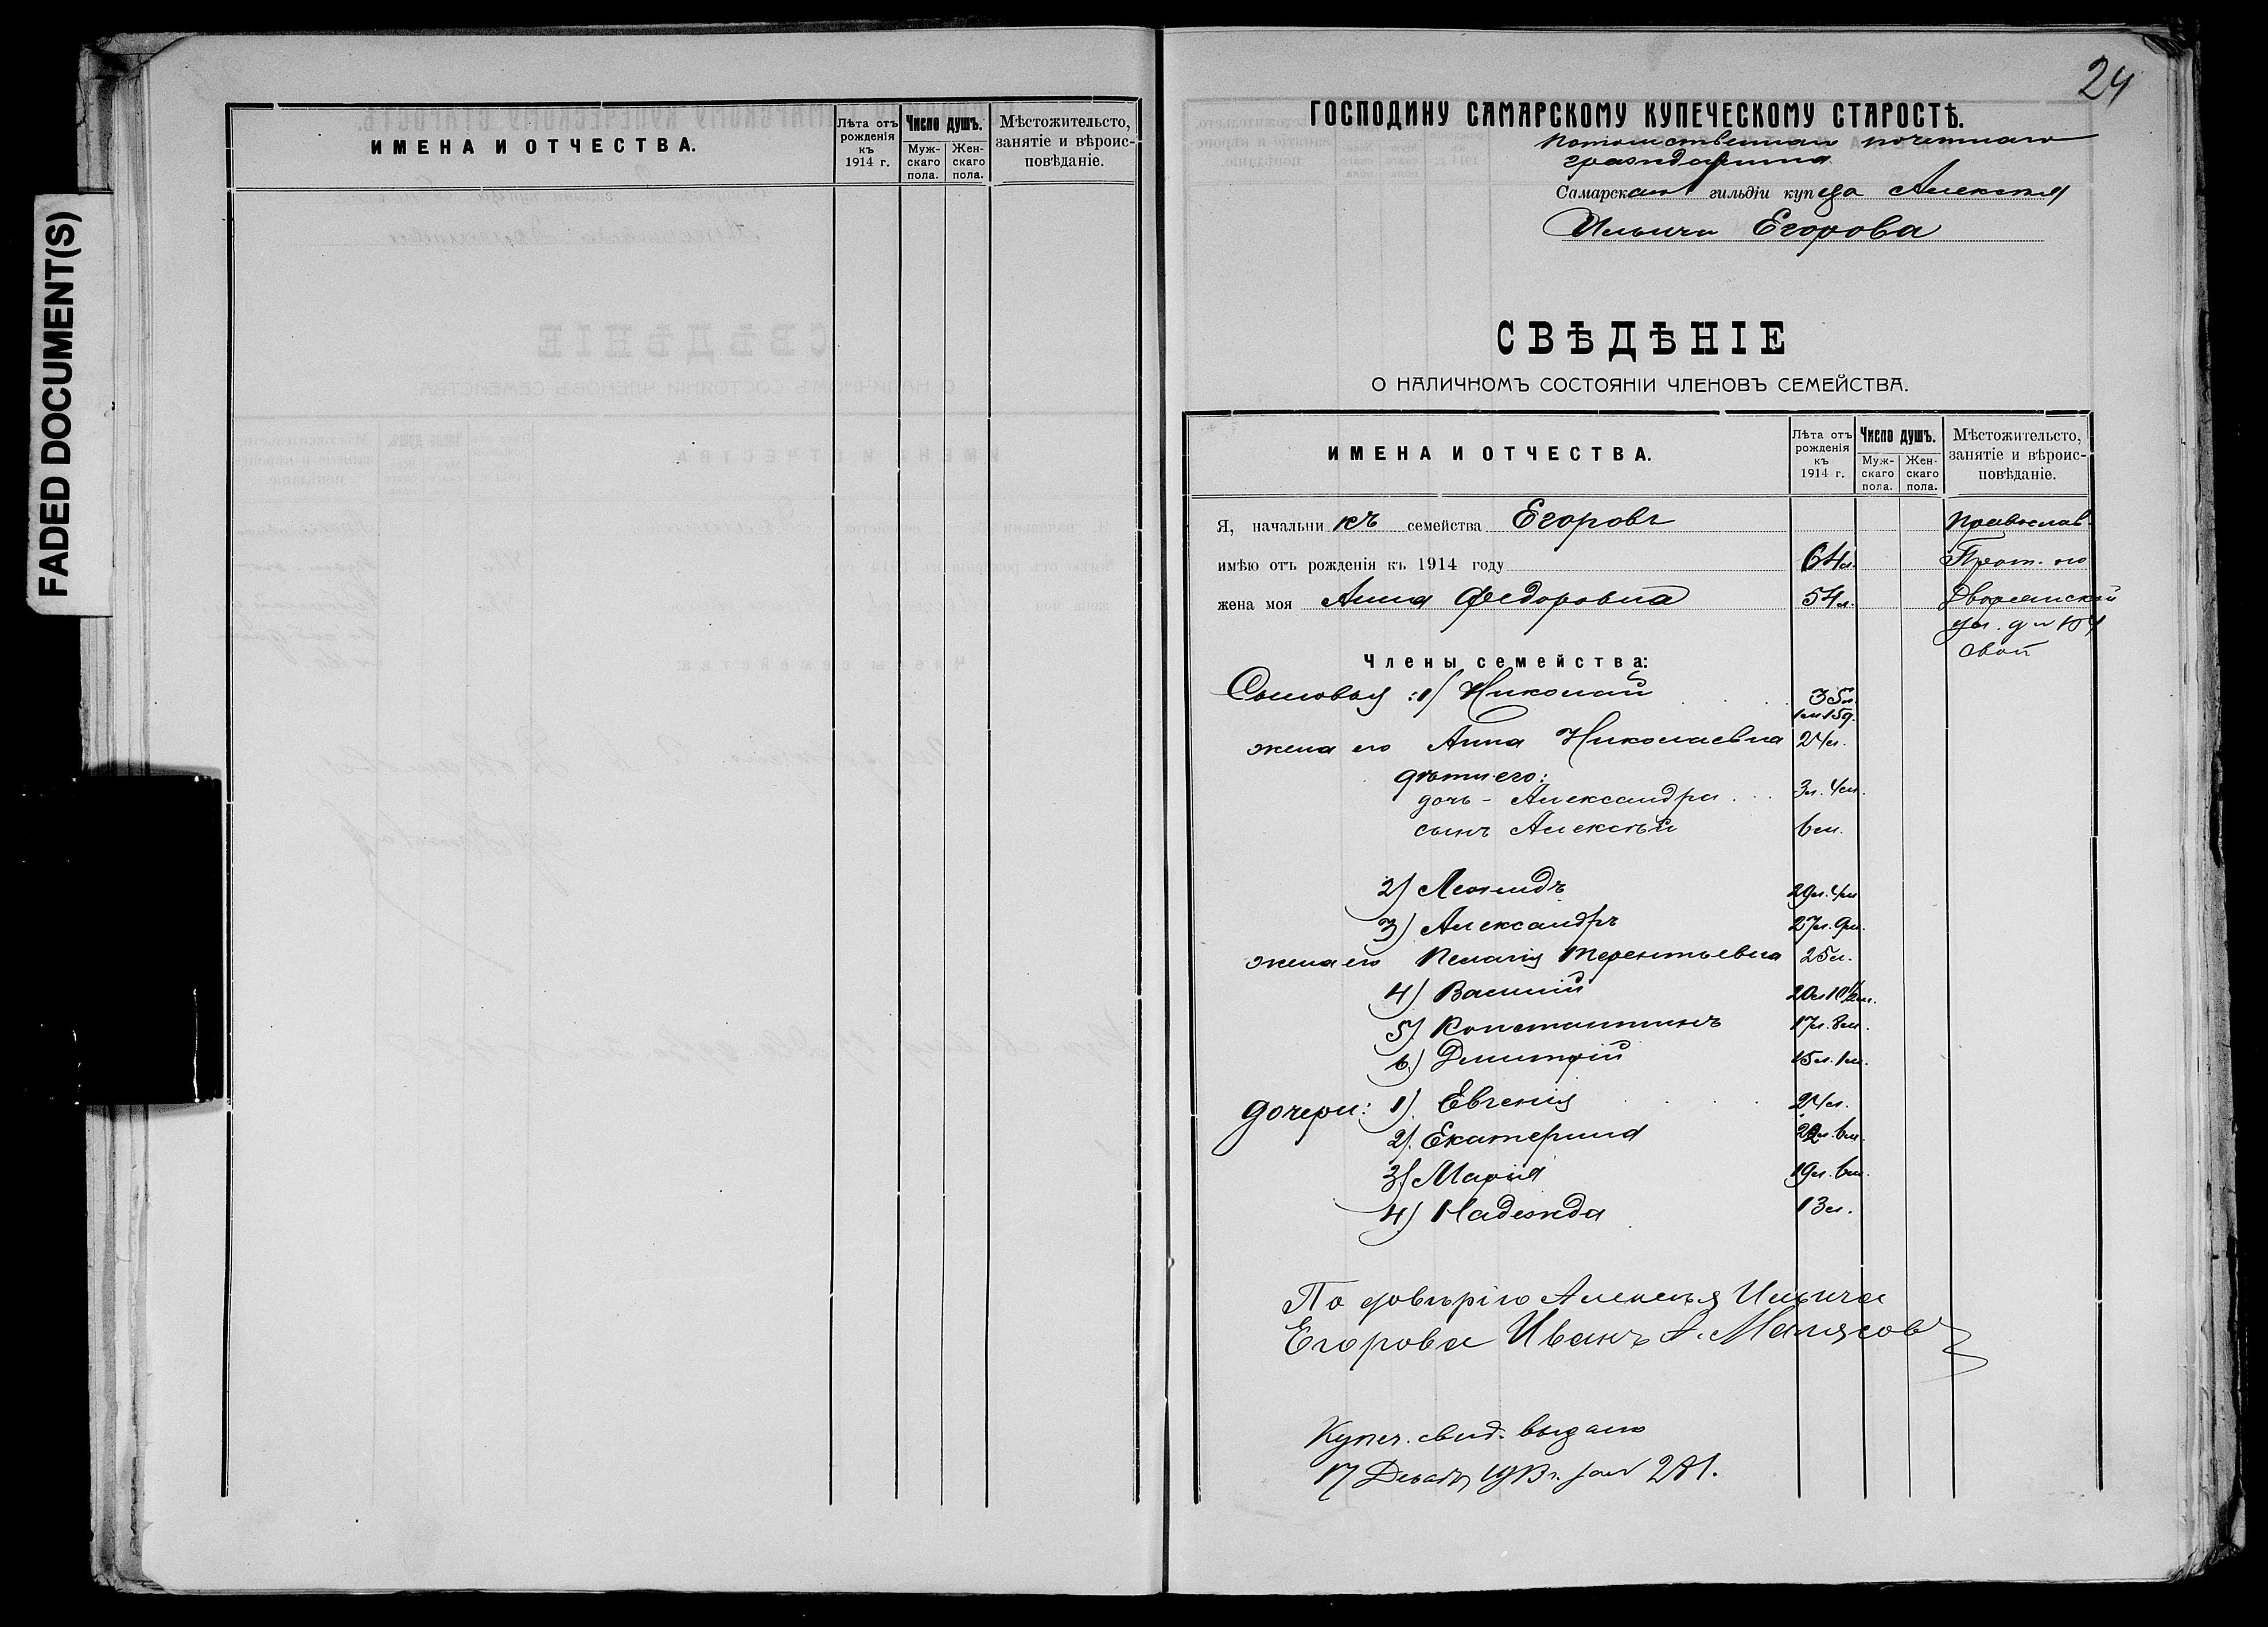 FADED DOCUMENT(S)
ИМЕНА И ОТЧЕСТВА.
Лѣта отъ рожденія къ 1914 г.
Число душъ.
Муж-скаго пола.
Жен-скаго пола.
Мѣстожительсто, занятіе и вѣроис-повѣданіе.
24
ГОСПОДИНУ САМАРСКОМУ КУПЕЧЕСКОМУ СТАРОСТѢ.
потомственнаго почетнаго
гражданина
Самарскаго гильдіи купца Алексѣя
Ильича Егорова
СВѢДѢНІЕ
О НАЛИЧНОМЪ СОСТОЯНІИ ЧЛЕНОВЪ СЕМЕЙСТВА.
ИМЕНА И ОТЧЕСТВА.
Лѣта отъ рожденія къ 1914 г.
Число душъ.
Муж-скаго пола.
Жен-скаго пола.
Мѣстожительсто, занятіе и вѣроис-повѣданіе.
Я, начальникъ семейства Егоровъ православ.
имѣю отъ рожденія къ 1914 году 64л. Прож. по
жена моя Анна Федоровна 54л. Дворянской
ул. д №
свой
Члены семейства:
Сыновья: 1) Николай 35л.
1м 15д.
жена его Анна Николаевна 24л.
дѣти его:
дочь - Александра 3л. 4м.
сынъ Алексѣй 6м.
2) Леонидъ 29л. 4м
3) Александръ 27л. 9м.
жена его Пелагія Терентьевна 25л.
4) Василій 20л 10½м.
5) Константинъ 17л. 8м.
6) Дмитрій 15л. 1м.
дочери: 1) Евгенія 24л.
2). Екатерина 22л. 6м.
3) Марія 19л. 6м.
4) Надежда 13л.
По довѣрію Алексѣя Ильича
Егорова Иванъ А. Малясовъ
Купеч. свид. выдано
17 Декабр 1913 г. за № 281.